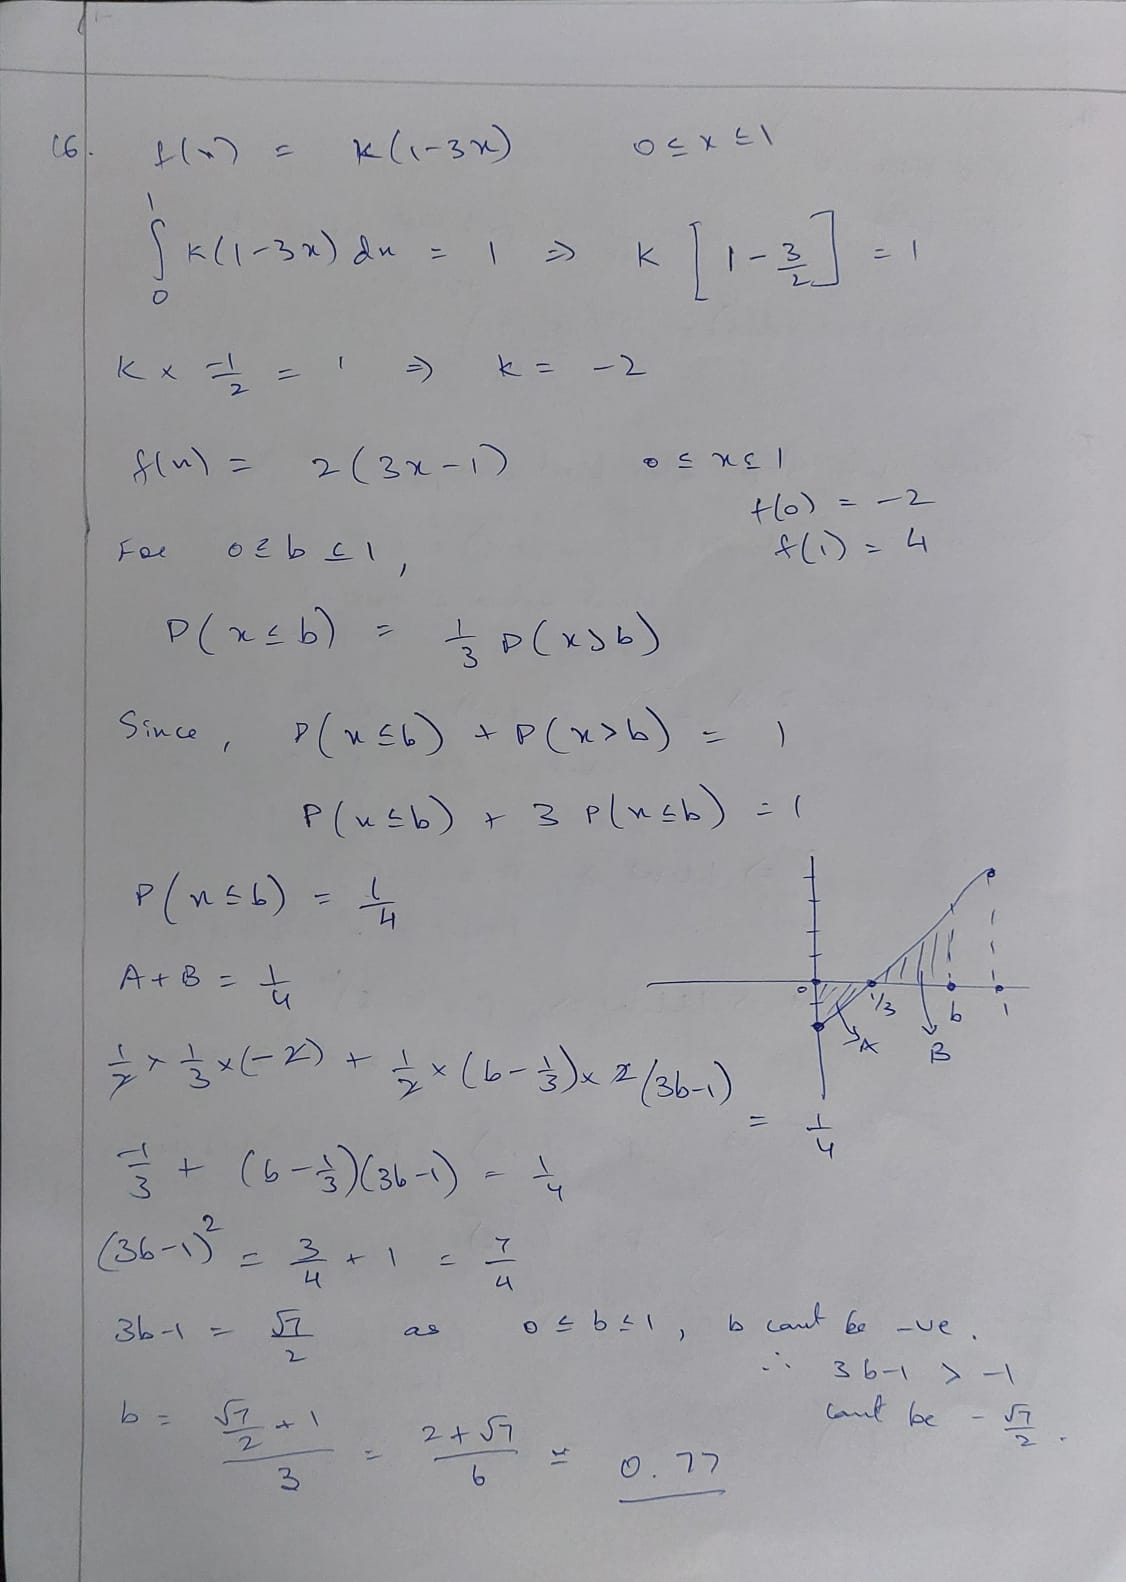 16. f(x) = k(1-3x) 0 ≤ x ≤ 1
∫₀¹ k(1-3x) dx = 1 ⇒ k [1 - 3/2] = 1
k × -1/2 = 1 ⇒ k = -2
f(x) = 2(3x-1) 0 ≤ x ≤ 1
f(0) = -2
For 0 ≤ b ≤ 1, f(1) = 4
P(x ≤ b) = 1/3 P(x > b)
Since, P(x ≤ b) + P(x > b) = 1
P(x ≤ b) + 3 P(x ≤ b) = 1
P(x ≤ b) = 1/4
A + B = 1/4
0 1/3 b 1
A B
1/2 × 1/3 × (-2) + 1/2 × (b - 1/3) × 2(3b-1) = 1/4
-1/3 + (b - 1/3)(3b-1) = 1/4
(3b-1)² = 3/4 + 1 = 7/4
3b-1 = √7/2 as 0 ≤ b ≤ 1, b cant be -ve.
∴ 3b-1 > -1
cant be -√7/2.
b = (√7/2 + 1)/3 = (2+√7)/6 ≃ 0.77